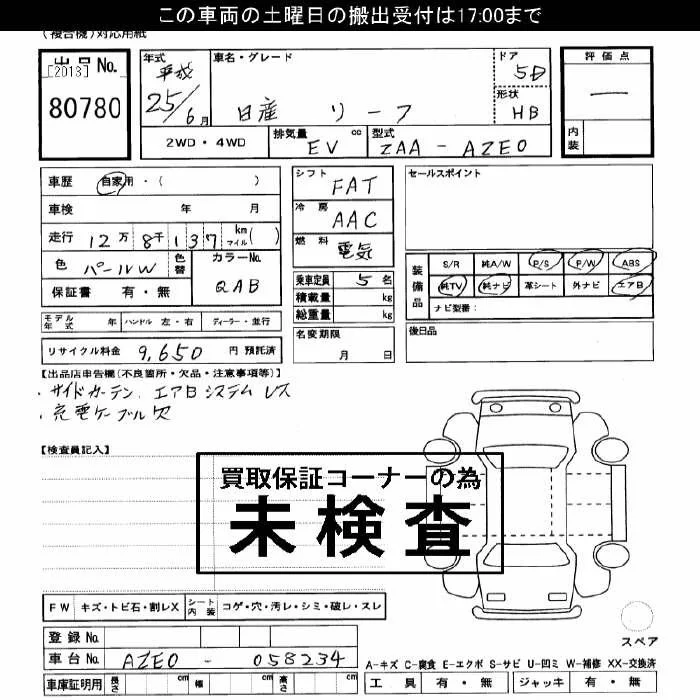 この車両の土曜日の搬出受付は17:00まで
(複合機)対応用紙
出品No.
[2013]
80780
年式
平成
25/6月
車名・グレード
日産 リーフ
ドア
5D
形状
HB
評価点
—
内装
2WD・4WD
排気量 cc
EV
型式
ZAA - AZEO
車歴 自家用・( )
車検 年 月
走行 12万8千137 km マイル( )
色 パールW 色替
カラーNo.
QAB
保証書 有・無
シフト
FAT
冷房
AAC
燃料
電気
乗車定員 5 名
積載量 kg
総重量 kg
名変期限
月 日
セールスポイント
装備品
S/R 純A/W P/S P/W ABS
純TV 純ナビ 革シート 外ナビ エアB
ナビ型番:
後日品
モデル年式 年 ハンドル 左・右 ディーラー・並行
リサイクル料金 9,650 円 預託済
【出品店申告欄(不良箇所・欠品・注意事項等)】
・サイドカーテン エアBシステムレス
・充電ケーブル欠
【検査員記入】
買取保証コーナーの為
未検査
FW キズ・トビ石・割レX シート内装 コゲ・穴・汚レ・シミ・破レ・スレ
スペア
登録No.
車台No. AZEO - 058234
車庫証明用 長さ cm 幅 cm 高さ cm
A-キズ C-腐食 E-エクボ S-サビ U-凹ミ W-補修 XX-交換済
工具 有・無 ジャッキ 有・無